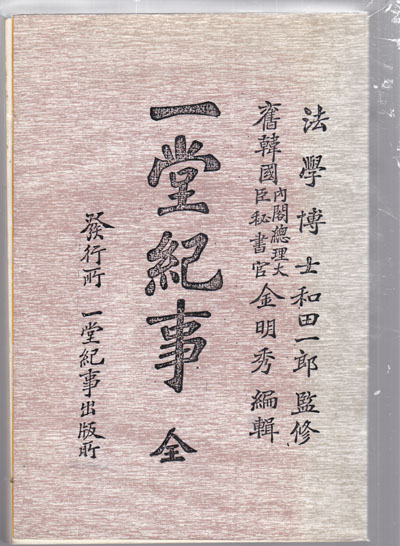 法學博士和田一郎監修
舊韓國內閣總理大臣秘書官金明秀編輯
一堂紀事 全
發行所 一堂紀事出版所